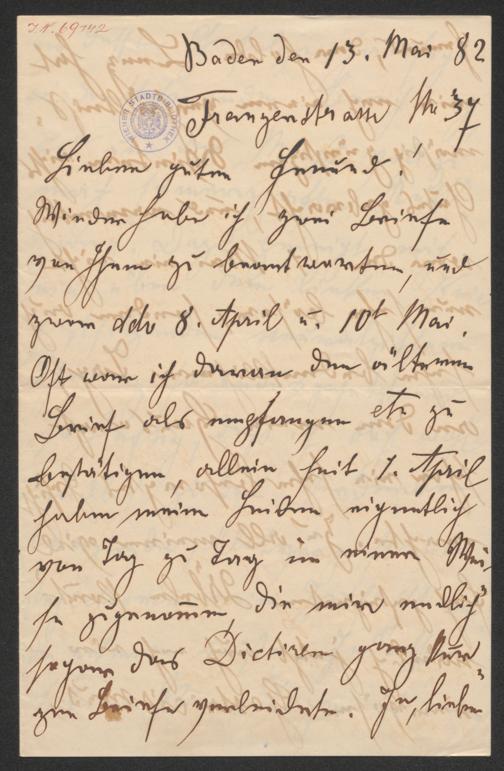 I.N. 69142
WIENER STADTBIBLIOTHEK
Baden den 13. Mai 82
Franzensstrasse Nr 37
Lieber guter Freund!
Wieder habe ich zwei Briefe
von Ihnen zu beantworten, und
zwar ddo 8. April u. 10t Mai.
Oft war ich daran den älteren
Brief als empfangen etc zu
bestätigen, allein seit 1. April
haben meine Leiden eigentlich
von Tag zu Tag in einer Wei-
se zugenommen, die mir endlich
sogar das Dictiren ganz kur-
zer Briefe verleidete. Ja, lieber